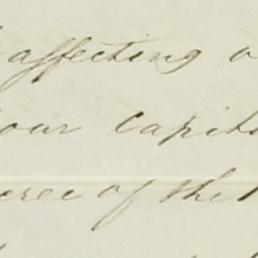 affecting
our capit
cree of the